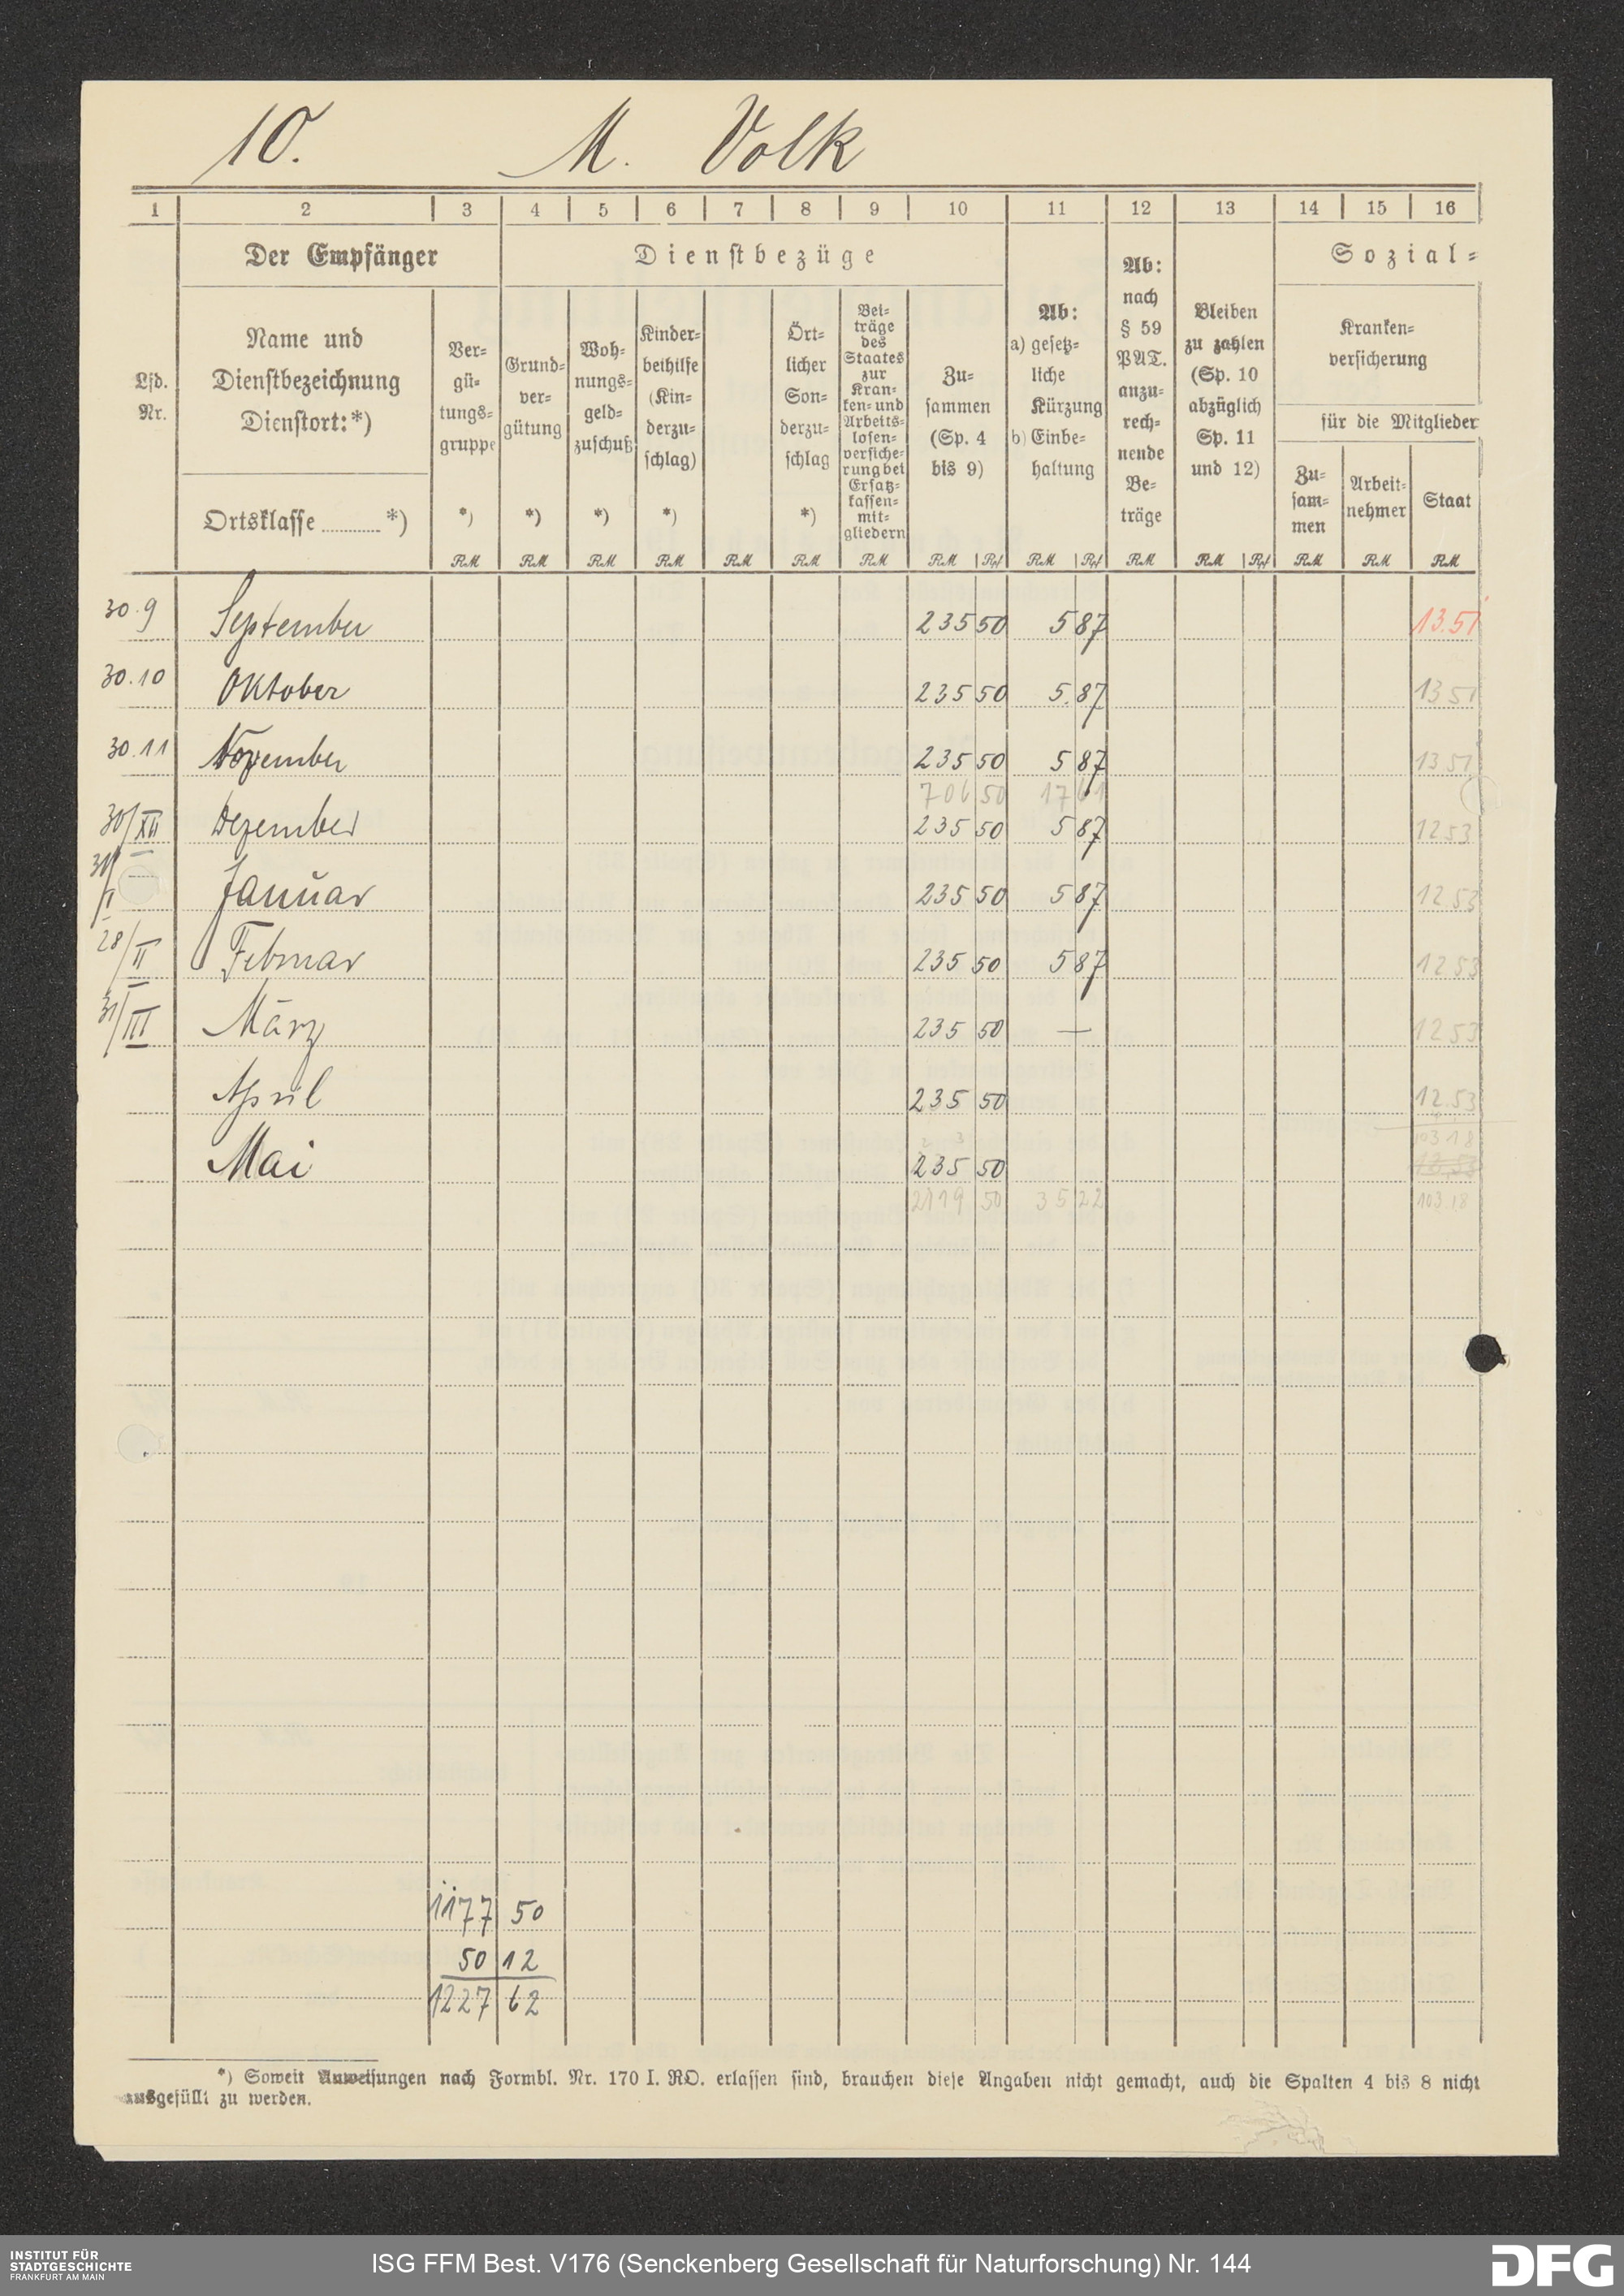 10. M. Volk
1 2 3 4 5 6 7 8 9 10 11 12 13 14 15 16
Der Empfänger
Dienstbezüge
Sozial=
Lfd.
Nr.
Name und
Dienstbezeichnung
Dienstort:*)
Ortsklasse ........ *)
Ver=
gü=
tungs=
gruppe
*)
Grund=
ver=
gütung
*)
Woh=
nungs=
geld=
zuschuß
*)
Kinder=
beihilfe
(Kin=
derzu=
schlag)
*)
Ört=
licher
Son=
derzu=
schlag
*)
Bei=
träge
des
Staates
zur
Kran=
ken= und
Arbeits=
losen=
versiche=
rung bei
Ersatz=
kassen=
mit=
gliedern
Zu=
sammen
(Sp. 4
bis 9)
Ab:
a) gesetz=
liche
Kürzung
b) Einbe=
haltung
Ab:
nach
§ 59
PAT.
anzu=
rech=
nende
Be=
träge
Bleiben
zu zahlen
(Sp. 10
abzüglich
Sp. 11
und 12)
Kranken=
versicherung
für die Mitglieder
Zu=
sam=
men
Arbeit=
nehmer
Staat
RM RM RM RM RM RM RM RM Rpf RM Rpf RM RM Rpf RM RM RM
30.9 September 235 50 5 87 13.51
30.10 Oktober 235 50 5.87 13 51
30.11 November 235 50 5 87 13 51
706 50 17 61
30/XII Dezember 235 50 5 87 12 53
31/I Januar 235 50 5 87 12.53
28/II Februar 235 50 5 87 12 53
31/III März 235 50 — 12 53
April 235 50 12.53
103 18
Mai 235 50 12,53
2119 50 35 22 103.18
1177 50
50 12
1227 62
*) Soweit Anweisungen nach Formbl. Nr. 170 I. RO. erlassen sind, brauchen diese Angaben nicht gemacht, auch die Spalten 4 bis 8 nicht
ausgefüllt zu werden.
INSTITUT FÜR
STADTGESCHICHTE
FRANKFURT AM MAIN
ISG FFM Best. V176 (Senckenberg Gesellschaft für Naturforschung) Nr. 144
DFG